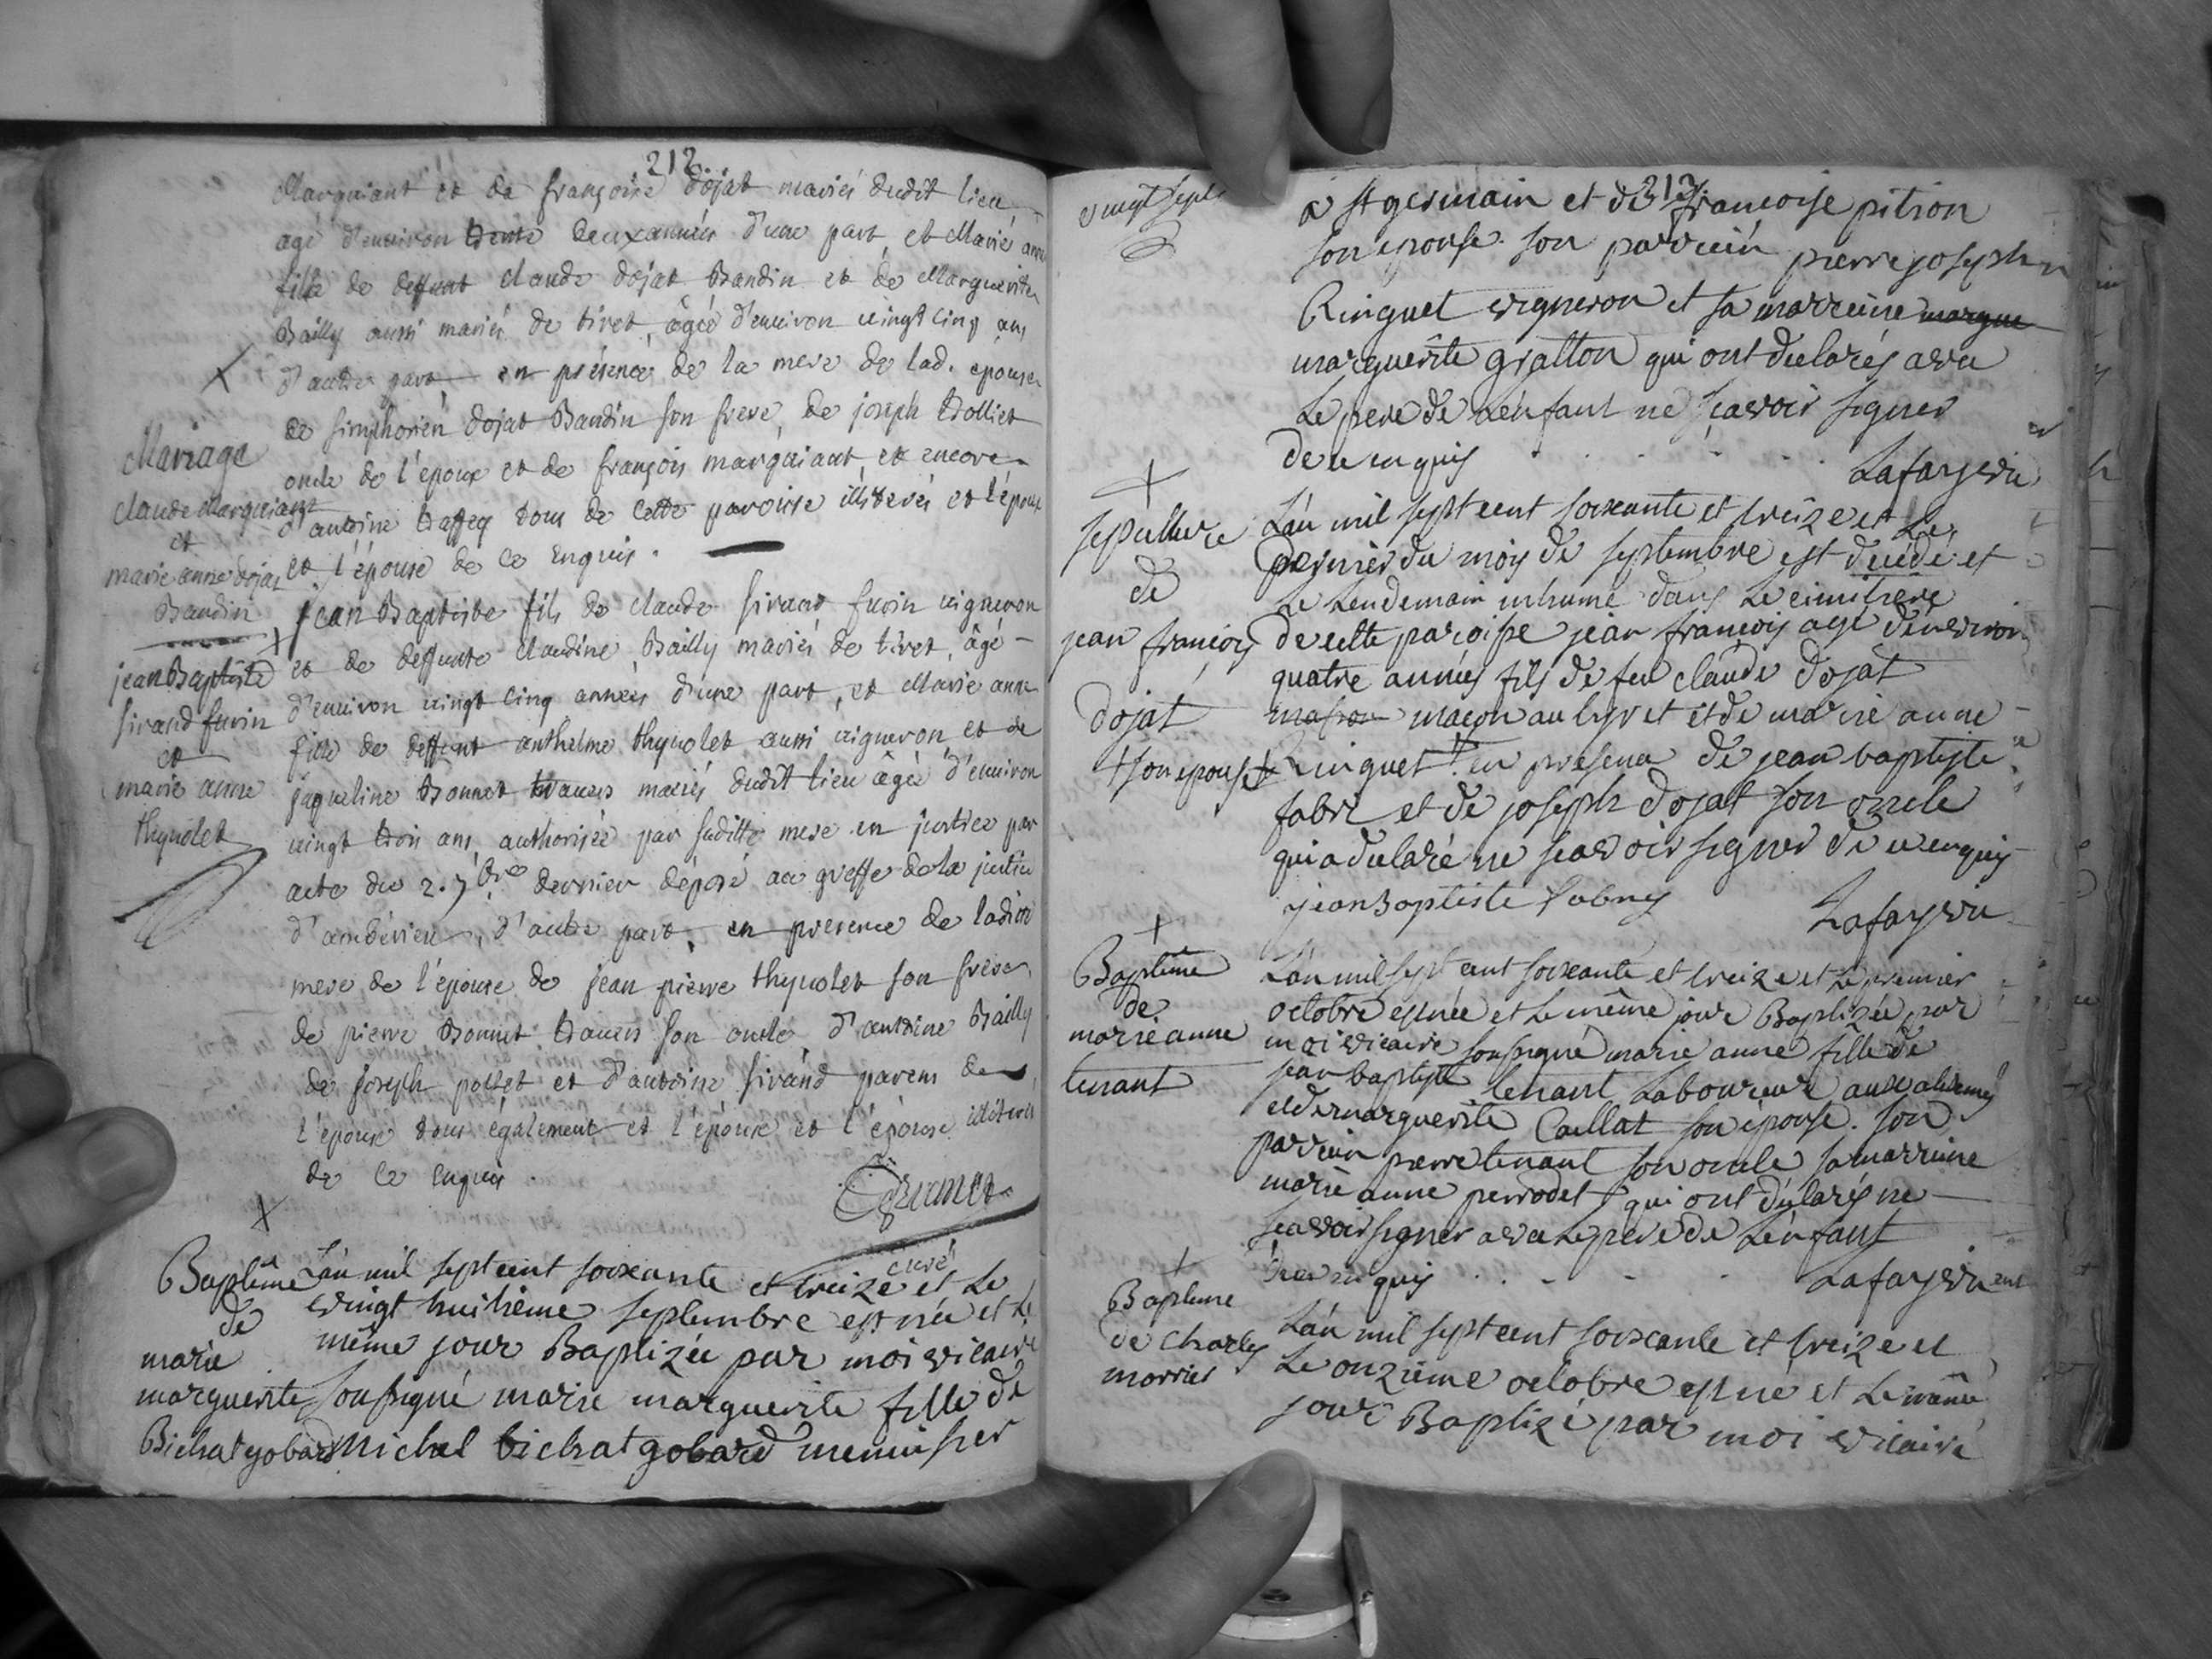 212.
Marguiant et de françoise dojat mariés dudit lieu
agé d'environ trente deux années d'une part, et Marie anne
fille de deffunt claude dojat Baudin et de Marguerite
Bailly aussi mariés de tiret, âgée d'environ vingt cinq ans
d'autre part, en présence de la mere de lad. epouse
de simphorien dojat Baudin son frere, de joseph trolliet
oncle de l'epoux et de françois marguiant, et encore
d'antoine traffey tous de cette paroisse illiterés et l'époux
et l'épouse de ce enquis.
Mariage
claude Marguiant
et
marie anne dojat
Baudin
jean Baptiste fils de claude sirand furin vigneron
et de deffunte claudine Bailly mariés de tiret, âgé
d'environ vingt cinq années d'une part, et Marie anne
fille de deffunt anthelme thynolet aussi vigneron et de
jaqueline Bonnet travers mariés dudit lieu âgée d'environ
vingt trois ans, authorisée par saditte mere en justice par
acte du 2. 7bre dernier déposé au greffe de la justice
d'ambérieu, d'autre part, en presence de ladite
mere de l'épouse de jean pierre thynolet son frere
de pierre Bonnet travers son oncle, d'antoine Bailly
de joseph pottet et d'antoine sirand parens de
l'épouse tous également et l'époux et l'épouse illiterés
de ce enquis.
curé
jean Baptiste
sirand furin
et
marie anne
thynolet
Baptême
de
marie
marguerite
Bichat gobard
L'an mil sept cent soixante et treize et Le
vingt huitième septembre est née et Le
même jour Baptizée par moi vicaire
soussigné marie marguerite fille de
Michel bichat gobard menuisier
213.
vingt sept
a st germain et de francoise pition
son epouse. son parrein pierre joseph
Ringuet vigneron et sa marreine margue
marguerite gratton qui ont declarés avec
Le pere de L'enfant ne sçavoir signer
de ce enquis
Lafay vic
sepulture
de
jean françois
dojat
+ son epouse
L'an mil sept cent soixante et treize et Le
dernier du mois de septembre est decédé et
Le Lendemain inhumé dans Le cimitiere
de cette paroisse jean françois agé d'environ
quatre années fils de feu claude dojat
masson maçon au tiret et de marie anne
Ringuet + en presence de jean baptiste
fabri et de joseph dojat son oncle
qui a declaré ne scavoir signer de ce enquis
jean Baptiste fabry
Lafay vic
Baptême
de
marie anne
tenant
L'an mil sept cent soixante et treize et Le premier
octobre est née et Le même jour Baptizée par
moi vicaire soussigné marie anne fille de
jean baptiste tenant Laboureur aux
et de marguerite Caillat son épouse. son
parrein pierre tenant son oncle sa marreine
marie anne perrodet qui ont déclarés ne
scavoir signer avec Le pere de L'enfant
de ce enquis
Lafay vic
Bapteme
de charles
morrier
L'an mil sept cent soixante et treize et
Le onzieme octobre est né et Le même
jour Baptizé par moi vicaire